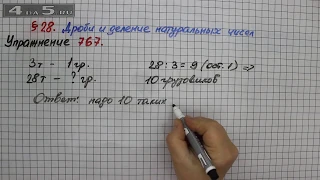 4-All-5.RU
§28. Дроби и деление натуральных чисел
Упражнение 767.
3т - 1гр. 28 : 3 = 9 (ост. 1) ⇒
28т - ? гр. 10 грузовиков
Ответ: надо 10 таких